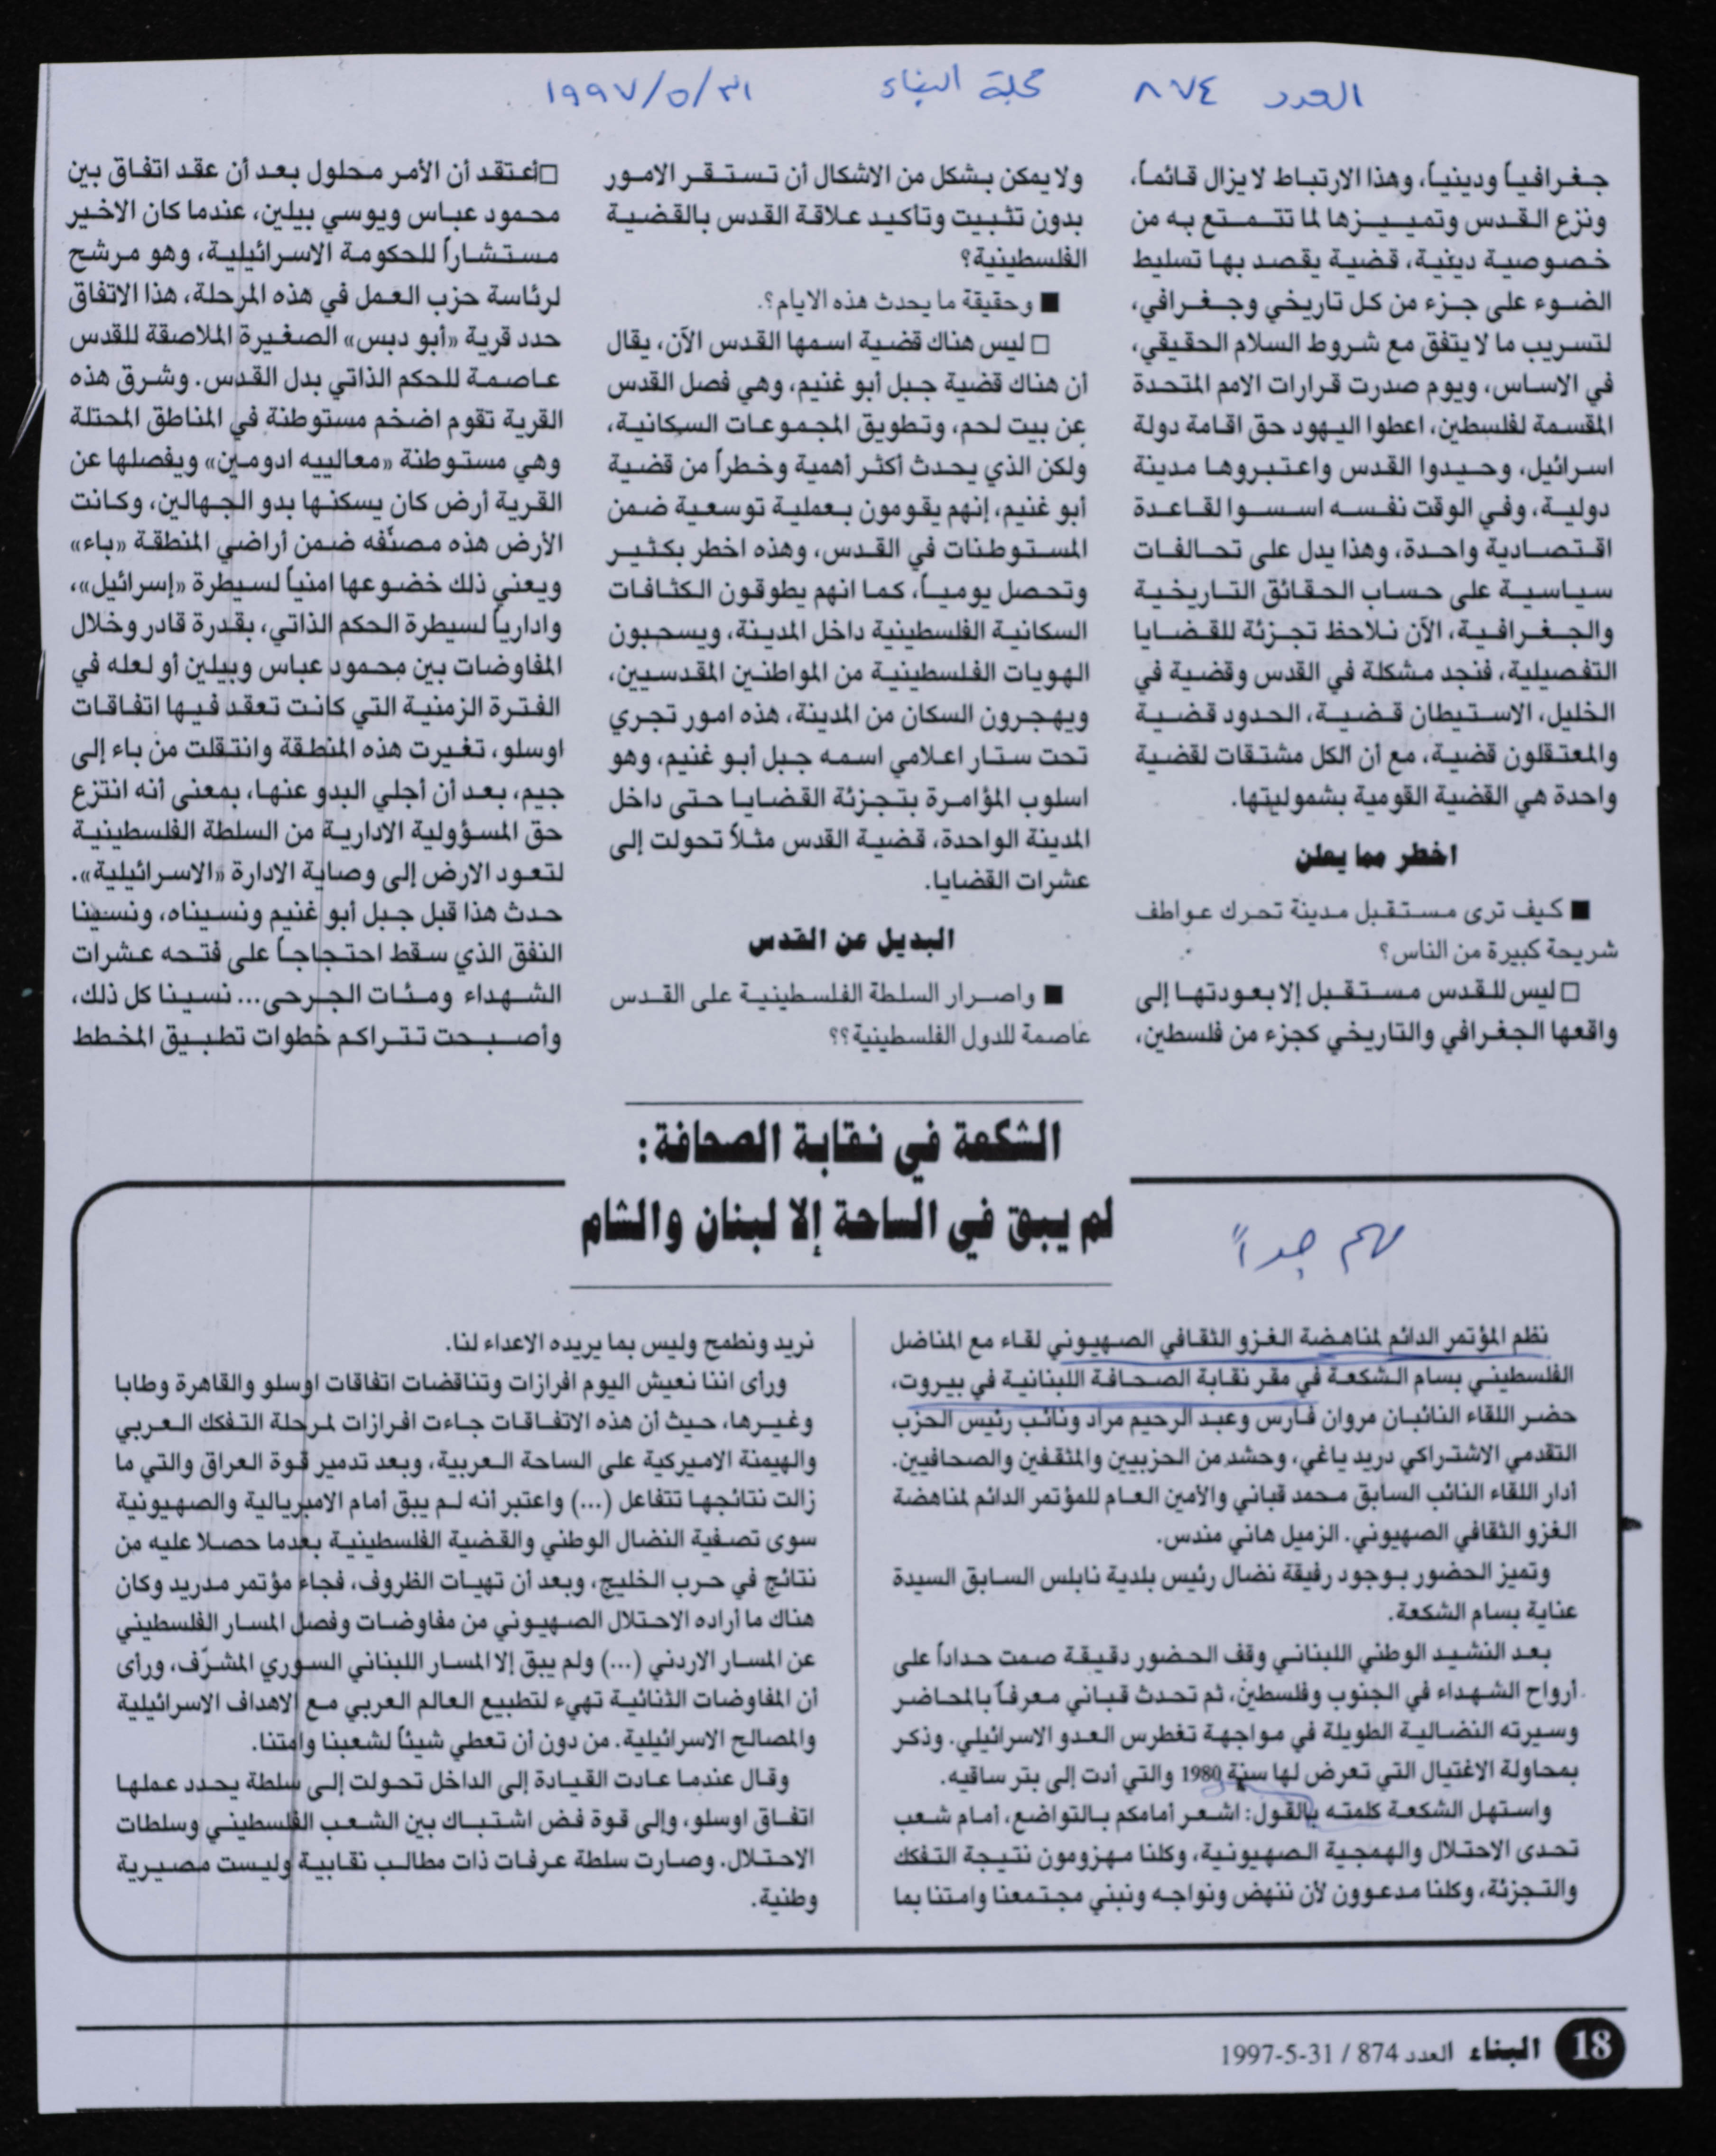 العدد ٨٧٤ مجلة البناء ٣١/٥/١٩٩٧
جغرافياً ودينياً، وهذا الارتباط لا يزال قائماً،
ونزع القدس وتمييزها لما تتمتع به من
خصوصية دينية، قضية يقصد بها تسليط
الضوء على جزء من كل تاريخي وجغرافي،
لتسريب ما لا يتفق مع شروط السلام الحقيقي،
في الاساس، ويوم صدرت قرارات الامم المتحدة
المقسمة لفلسطين، اعطوا اليهود حق اقامة دولة
اسرائيل، وحيدوا القدس واعتبروها مدينة
دولية، وفي الوقت نفسه اسسوا لقاعدة
اقتصادية واحدة، وهذا يدل على تحالفات
سياسية على حساب الحقائق التاريخية
والجغرافية، الآن نلاحظ تجزئة للقضايا
التفصيلية، فنجد مشكلة في القدس وقضية في
الخليل، الاستيطان قضية، الحدود قضية
والمعتقلون قضية، مع أن الكل مشتقات لقضية
واحدة هي القضية القومية بشموليتها.
اخطر مما يعلن
■ كيف ترى مستقبل مدينة تحرك عواطف
شريحة كبيرة من الناس؟
□ ليس للقدس مستقبل إلا بعودتها إلى
واقعها الجغرافي والتاريخي كجزء من فلسطين،
ولا يمكن بشكل من الاشكال أن تستقر الامور
بدون تثبيت وتأكيد علاقة القدس بالقضية
الفلسطينية؟
■ وحقيقة ما يحدث هذه الايام؟.
□ ليس هناك قضية اسمها القدس الآن، يقال
أن هناك قضية جبل أبو غنيم، وهي فصل القدس
عن بيت لحم، وتطويق المجموعات السكانية،
ولكن الذي يحدث أكثر أهمية وخطراً من قضية
أبو غنيم، إنهم يقومون بعملية توسعية ضمن
المستوطنات في القدس، وهذه اخطر بكثير
وتحصل يومياً، كما انهم يطوقون الكثافات
السكانية الفلسطينية داخل المدينة، ويسحبون
الهويات الفلسطينية من المواطنين المقدسيين،
ويهجرون السكان من المدينة، هذه امور تجري
تحت ستار اعلامي اسمه جبل أبو غنيم، وهو
اسلوب المؤامرة بتجزئة القضايا حتى داخل
المدينة الواحدة، قضية القدس مثلاً تحولت إلى
عشرات القضايا.
البديل عن القدس
■ واصرار السلطة الفلسطينية على القدس
عاصمة للدول الفلسطينية؟؟
□أعتقد أن الأمر محلول بعد أن عقد اتفاق بين
محمود عباس ويوسي بيلين، عندما كان الاخير
مستشاراً للحكومة الاسرائيلية، وهو مرشح
لرئاسة حزب العمل في هذه المرحلة، هذا الاتفاق
حدد قرية «أبو دبس» الصغيرة الملاصقة للقدس
عاصمة للحكم الذاتي بدل القدس. وشرق هذه
القرية تقوم اضخم مستوطنة في المناطق المحتلة
وهي مستوطنة «معالييه ادومين» ويفصلها عن
القرية أرض كان يسكنها بدو الجهالين، وكانت
الأرض هذه مصنّفه ضمن أراضي المنطقة «باء»
ويعني ذلك خضوعها امنياً لسيطرة «إسرائيل»،
وادارياً لسيطرة الحكم الذاتي، بقدرة قادر وخلال
المفاوضات بين محمود عباس وبيلين أو لعله في
الفترة الزمنية التي كانت تعقد فيها اتفاقات
اوسلو، تغيرت هذه المنطقة وانتقلت من باء إلى
جيم، بعد أن أجلي البدو عنها، بمعنى أنه انتزع
حق المسؤولية الادارية من السلطة الفلسطينية
لتعود الارض إلى وصاية الادارة «الاسرائيلية».
حدث هذا قبل جبل أبو غنيم ونسيناه، ونسينا
النفق الذي سقط احتجاجاً على فتحه عشرات
الشهداء ومئات الجرحى... نسينا كل ذلك،
وأصبحت تتراكم خطوات تطبيق المخطط
الشكعة في نقابة الصحافة:
لم يبق في الساحة إلا لبنان والشام
مهم جداً
نظم المؤتمر الدائم لمناهضة الغزو الثقافي الصهيوني لقاء مع المناضل
الفلسطيني بسام الشكعة في مقر نقابة الصحافة اللبنانية في بيروت،
حضر اللقاء النائبان مروان فارس وعبد الرحيم مراد ونائب رئيس الحزب
التقدمي الاشتراكي دريد ياغي، وحشد من الحزبيين والمثقفين والصحافيين.
أدار اللقاء النائب السابق محمد قباني والأمين العام للمؤتمر الدائم لمناهضة
الغزو الثقافي الصهيوني. الزميل هاني مندس.
وتميز الحضور بوجود رفيقة نضال رئيس بلدية نابلس السابق السيدة
عناية بسام الشكعة.
بعد النشيد الوطني اللبناني وقف الحضور دقيقة صمت حداداً على
أرواح الشهداء في الجنوب وفلسطين، ثم تحدث قباني معرفاً بالمحاضر
وسيرته النضالية الطويلة في مواجهة تغطرس العدو الاسرائيلي. وذكر
بمحاولة الاغتيال التي تعرض لها سنة 1980 والتي أدت إلى بتر ساقيه.
واستهل الشكعة كلمته بالقول: اشعر أمامكم بالتواضع، أمام شعب
تحدى الاحتلال والهمجية الصهيونية، وكلنا مهزومون نتيجة التفكك
والتجزئة، وكلنا مدعوون لأن ننهض ونواجه ونبني مجتمعنا وامتنا بما
نريد ونطمح وليس بما يريده الاعداء لنا.
ورأى اننا نعيش اليوم افرازات وتناقضات اتفاقات اوسلو والقاهرة وطابا
وغيرها، حيث أن هذه الاتفاقات جاءت افرازات لمرحلة التفكك العربي
والهيمنة الاميركية على الساحة العربية، وبعد تدمير قوة العراق والتي ما
زالت نتائجها تتفاعل (...) واعتبر أنه لم يبق أمام الامبريالية والصهيونية
سوى تصفية النضال الوطني والقضية الفلسطينية بعدما حصلا عليه من
نتائج في حرب الخليج، وبعد أن تهيات الظروف، فجاء مؤتمر مدريد وكان
هناك ما أراده الاحتلال الصهيوني من مفاوضات وفصل المسار الفلسطيني
عن المسار الاردني (...) ولم يبق إلا المسار اللبناني السوري المشرّف، ورأى
أن المفاوضات الثنائية تهيء لتطبيع العالم العربي مع الاهداف الاسرائيلية
والمصالح الاسرائيلية. من دون أن تعطي شيئاً لشعبنا وامتنا.
وقال عندما عادت القيادة إلى الداخل تحولت إلى سلطة يحدد عملها
اتفاق اوسلو، وإلى قوة فض اشتباك بين الشعب الفلسطيني وسلطات
الاحتلال. وصارت سلطة عرفات ذات مطالب نقابية وليست مصيرية
وطنية.
18 البناء العدد 874 / 31-5-1997